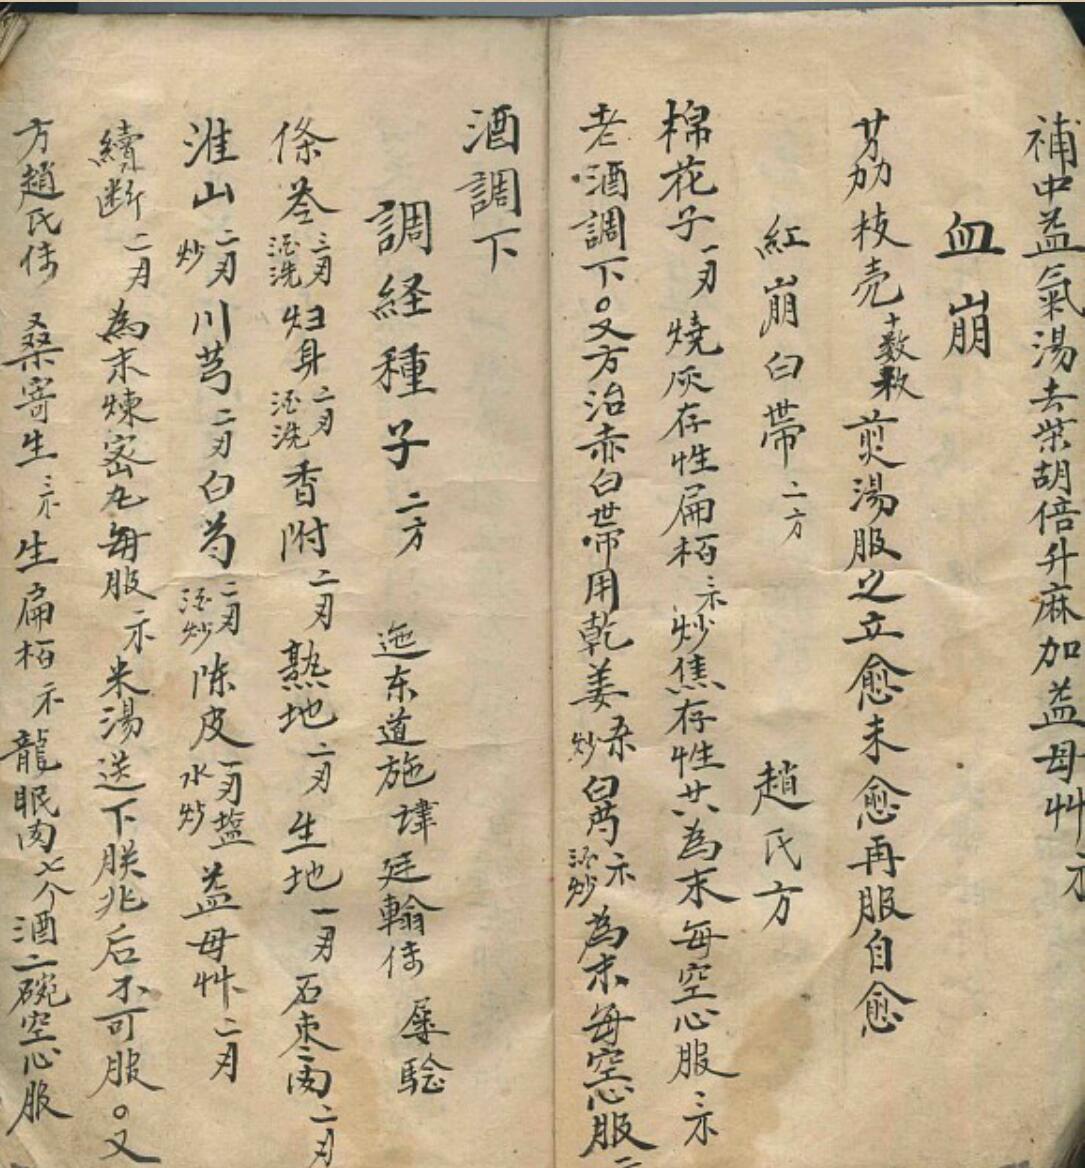 補中益氣湯去柴胡倍升麻加益母艸
血崩
荔枝壳十数敉煎湯服之立愈未愈再服自愈
紅崩白帶二方 趙氏方
棉花子一刄燒灰存性扁栢三朩炒焦存性共為末每空心服三朩
老酒調下。又方治赤白帶用乾姜炒白芍朩酒炒為末每空心服二
酒調下
調経種子二方 迤东道施諱廷翰传屡驗
條芩三刄酒洗归身二刄酒洗香附二刄熟地二刄生地一刄石枣肉二刄
淮山二刄炒川芎二刄白芍二刄酒炒陈皮一刄塩水炒益母艸二刄
續断二刄為末煉宻丸每服朩米湯送下朕兆后不可服。又
方趙氏传 桑寄生三朩生扁栢朩龍眼肉七个酒二碗空心服